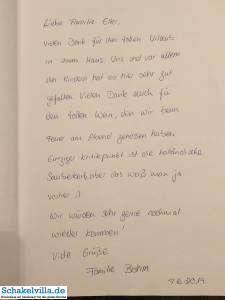 Liebe Familie Eller,
vielen Dank für den tollen Urlaub
in Ihrem Haus. Uns und vor allem
den Kindern hat es hier sehr gut
gefallen. Vielen Dank auch für
den tollen Wein, den wir beim
Feuer am Abend genossen haben.
Einziger Kritikpunkt ist die holländische
Sauberkeit, aber das weiß man ja
vorher ;)
Wir würden sehr gerne nochmal
wieder kommen!
Viele Grüße
Familie Böhm
7.6.2019
Schakelvilla.de